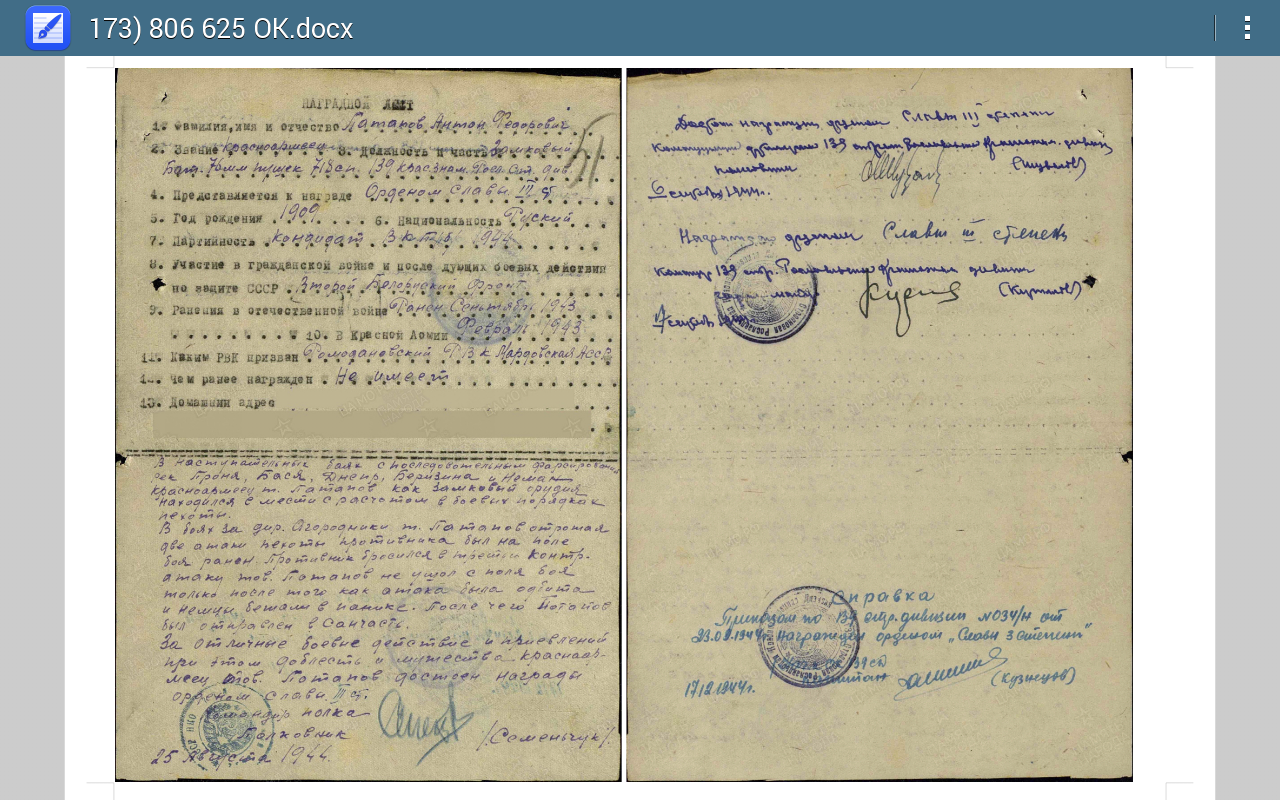 173) 806 625 OK.docx
НАГРАДНОЙ ЛИСТ
1. Фамилия,имя и отчество Патапов Антон Федорович
2. Звание красноармеец 3. Должность и часть Замковый
Бат. 76мм пушек 718сп. 139 Краснам. Росл. Стр. див.
51
4. Представляется к награде Орденом Славы III ст
5. Год рождения 1909 6. Национальность Руский
7. Партийность кондидат ВКП(б) 1944
8. Участие в гражданской войне и после дующих боевых действия
по защите СССР Второй Белоруский Фронт
9. Ранения в отечественной войне Ранен Сентябрь 1943
10. В Красной Аомии Февраль 1943
11. Каким РВК призван Ромодановский РВК Мардовская АССР
12. Чем ранее награжден Не имеет
13. Домашнии адрес
В наступательных баях с последовательным форсированием
рек Проня, Бася, Днепр, Березина и Неман
красноармеец т. Патапов как замковый орудия
находился в месте с расчотом в боевых порядках
пехоты.
В боях за дер. Агородники т. Патапов отрожая
две атаки пехоты противника был на поле
боя ранен. Противник бросился в третии контр-
атаки тов. Патапов не ушол с поля боя
только после того как атака была одбита
и немцы бежали в панике. После чего Потапов
был отправлен в Санчасть.
За отличные боевые действие и приевлений
при этом доблесть и мужества красноар-
меец тов. Патапов достоен награды
орденом Славы III ст.
Командир полка
Палковник /Семеньчук/
25 Августа 1944.
орденом Славы III степени
139
6 1944г.
орденом Славы III степень
139 стр. Рославльской
(Кириллов)
17
Справка
Приказом по 139 стр. дивизии №034/н от
1944г. Награжден орденом „Славы 3 степени"
139сд
капитан (Кузнецов)
1944г.